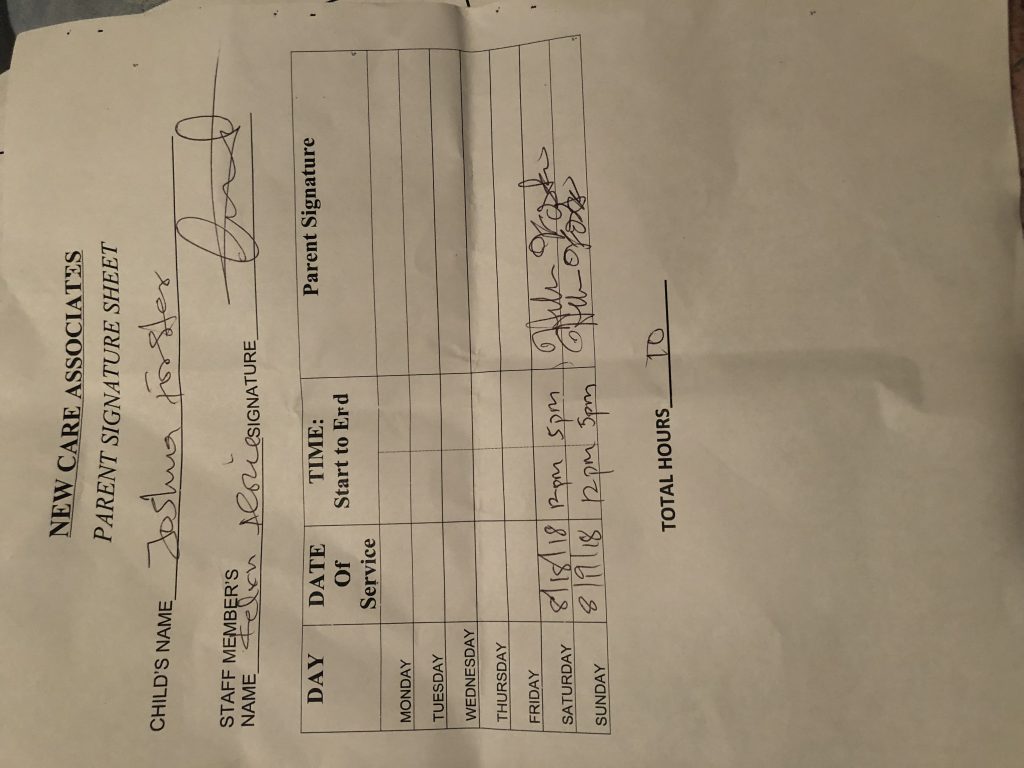 NEW CARE ASSOCIATES
PARENT SIGNATURE SHEET
CHILD'S NAME Joshua Forster
STAFF MEMBER'S
NAME SIGNATURE
DAY DATE Of Service TIME: Start to End Parent Signature
MONDAY
TUESDAY
WEDNESDAY
THURSDAY
FRIDAY
SATURDAY 8/18/18 12pm 5pm
SUNDAY 8/19/18 12pm 5pm
TOTAL HOURS 10